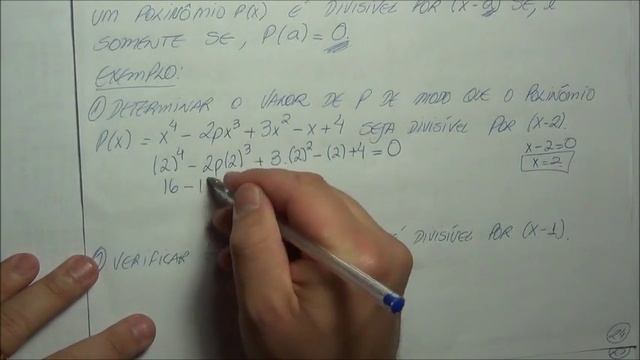 UM POLINÔMIO P(X) É DIVISÍVEL POR (X-a) SE, E
SOMENTE SE, P(a) = 0.
EXEMPLO:
① DETERMINAR O VALOR DE P DE MODO QUE O POLINÔMIO
P(x) = x⁴ - 2px³ + 3x² - x + 4 SEJA DIVISÍVEL POR (X-2).
(2)⁴ - 2p(2)³ + 3.(2)² - (2) + 4 = 0
x-2=0
x=2
16 - 1
② VERIFICAR É DIVISÍVEL POR (X-1).